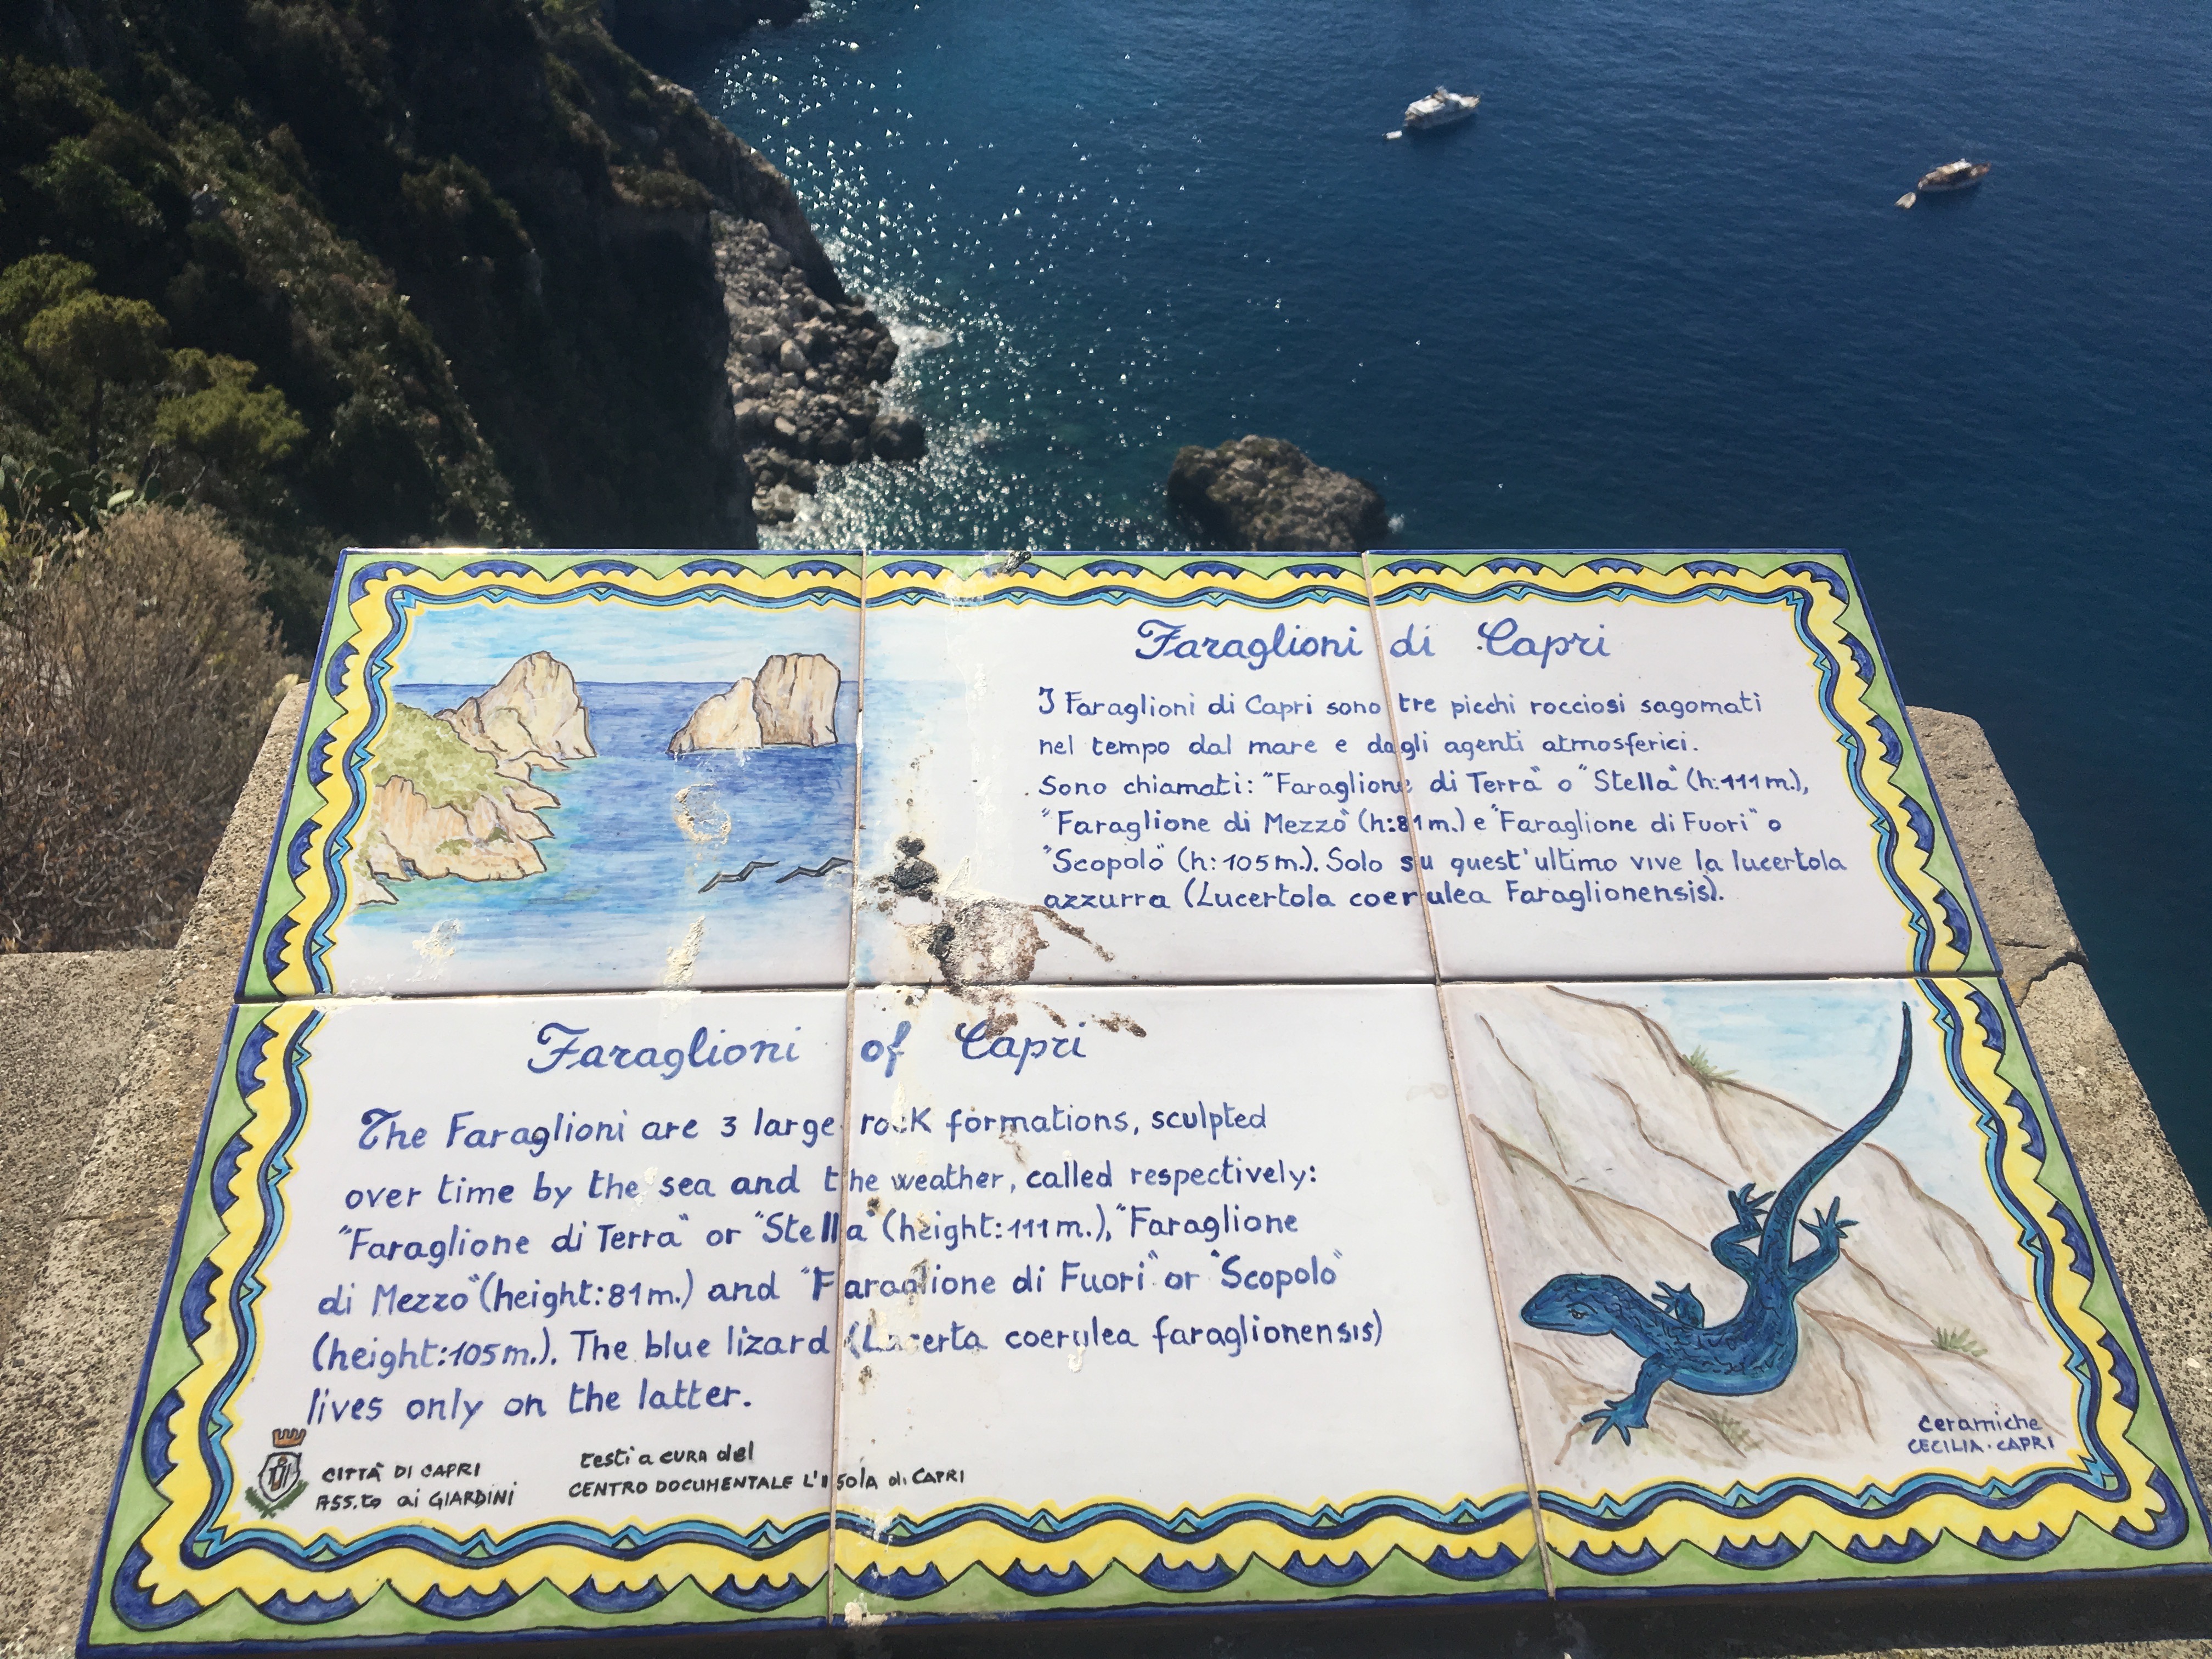 Faraglioni di Capri
I Faraglioni di Capri sono tre picchi rocciosi sagomati
nel tempo dal mare e dagli agenti atmosferici.
Sono chiamati: "Faraglione di Terra" o "Stella" (h:111m.),
"Faraglione di Mezzo" (h:81m.) e "Faraglione di Fuori" o
"Scopolo" (h:105m.). Solo su quest'ultimo vive la lucertola
azzurra (Lucertola coerulea Faraglionensis).
Faraglioni of Capri
The Faraglioni are 3 large rock formations, sculpted
over time by the sea and the weather, called respectively:
"Faraglione di Terra" or "Stella" (height:111m.), "Faraglione
di Mezzo" (height:81m.) and "Faraglione di Fuori" or "Scopolo"
(height:105m.). The blue lizard (Lacerta coerulea faraglionensis)
lives only on the latter.
CITTÀ DI CAPRI
ASS.to ai GIARDINI
testi a CURA del
CENTRO DOCUMENTALE L'ISOLA di CAPRI
ceramiche
CECILIA · CAPRI